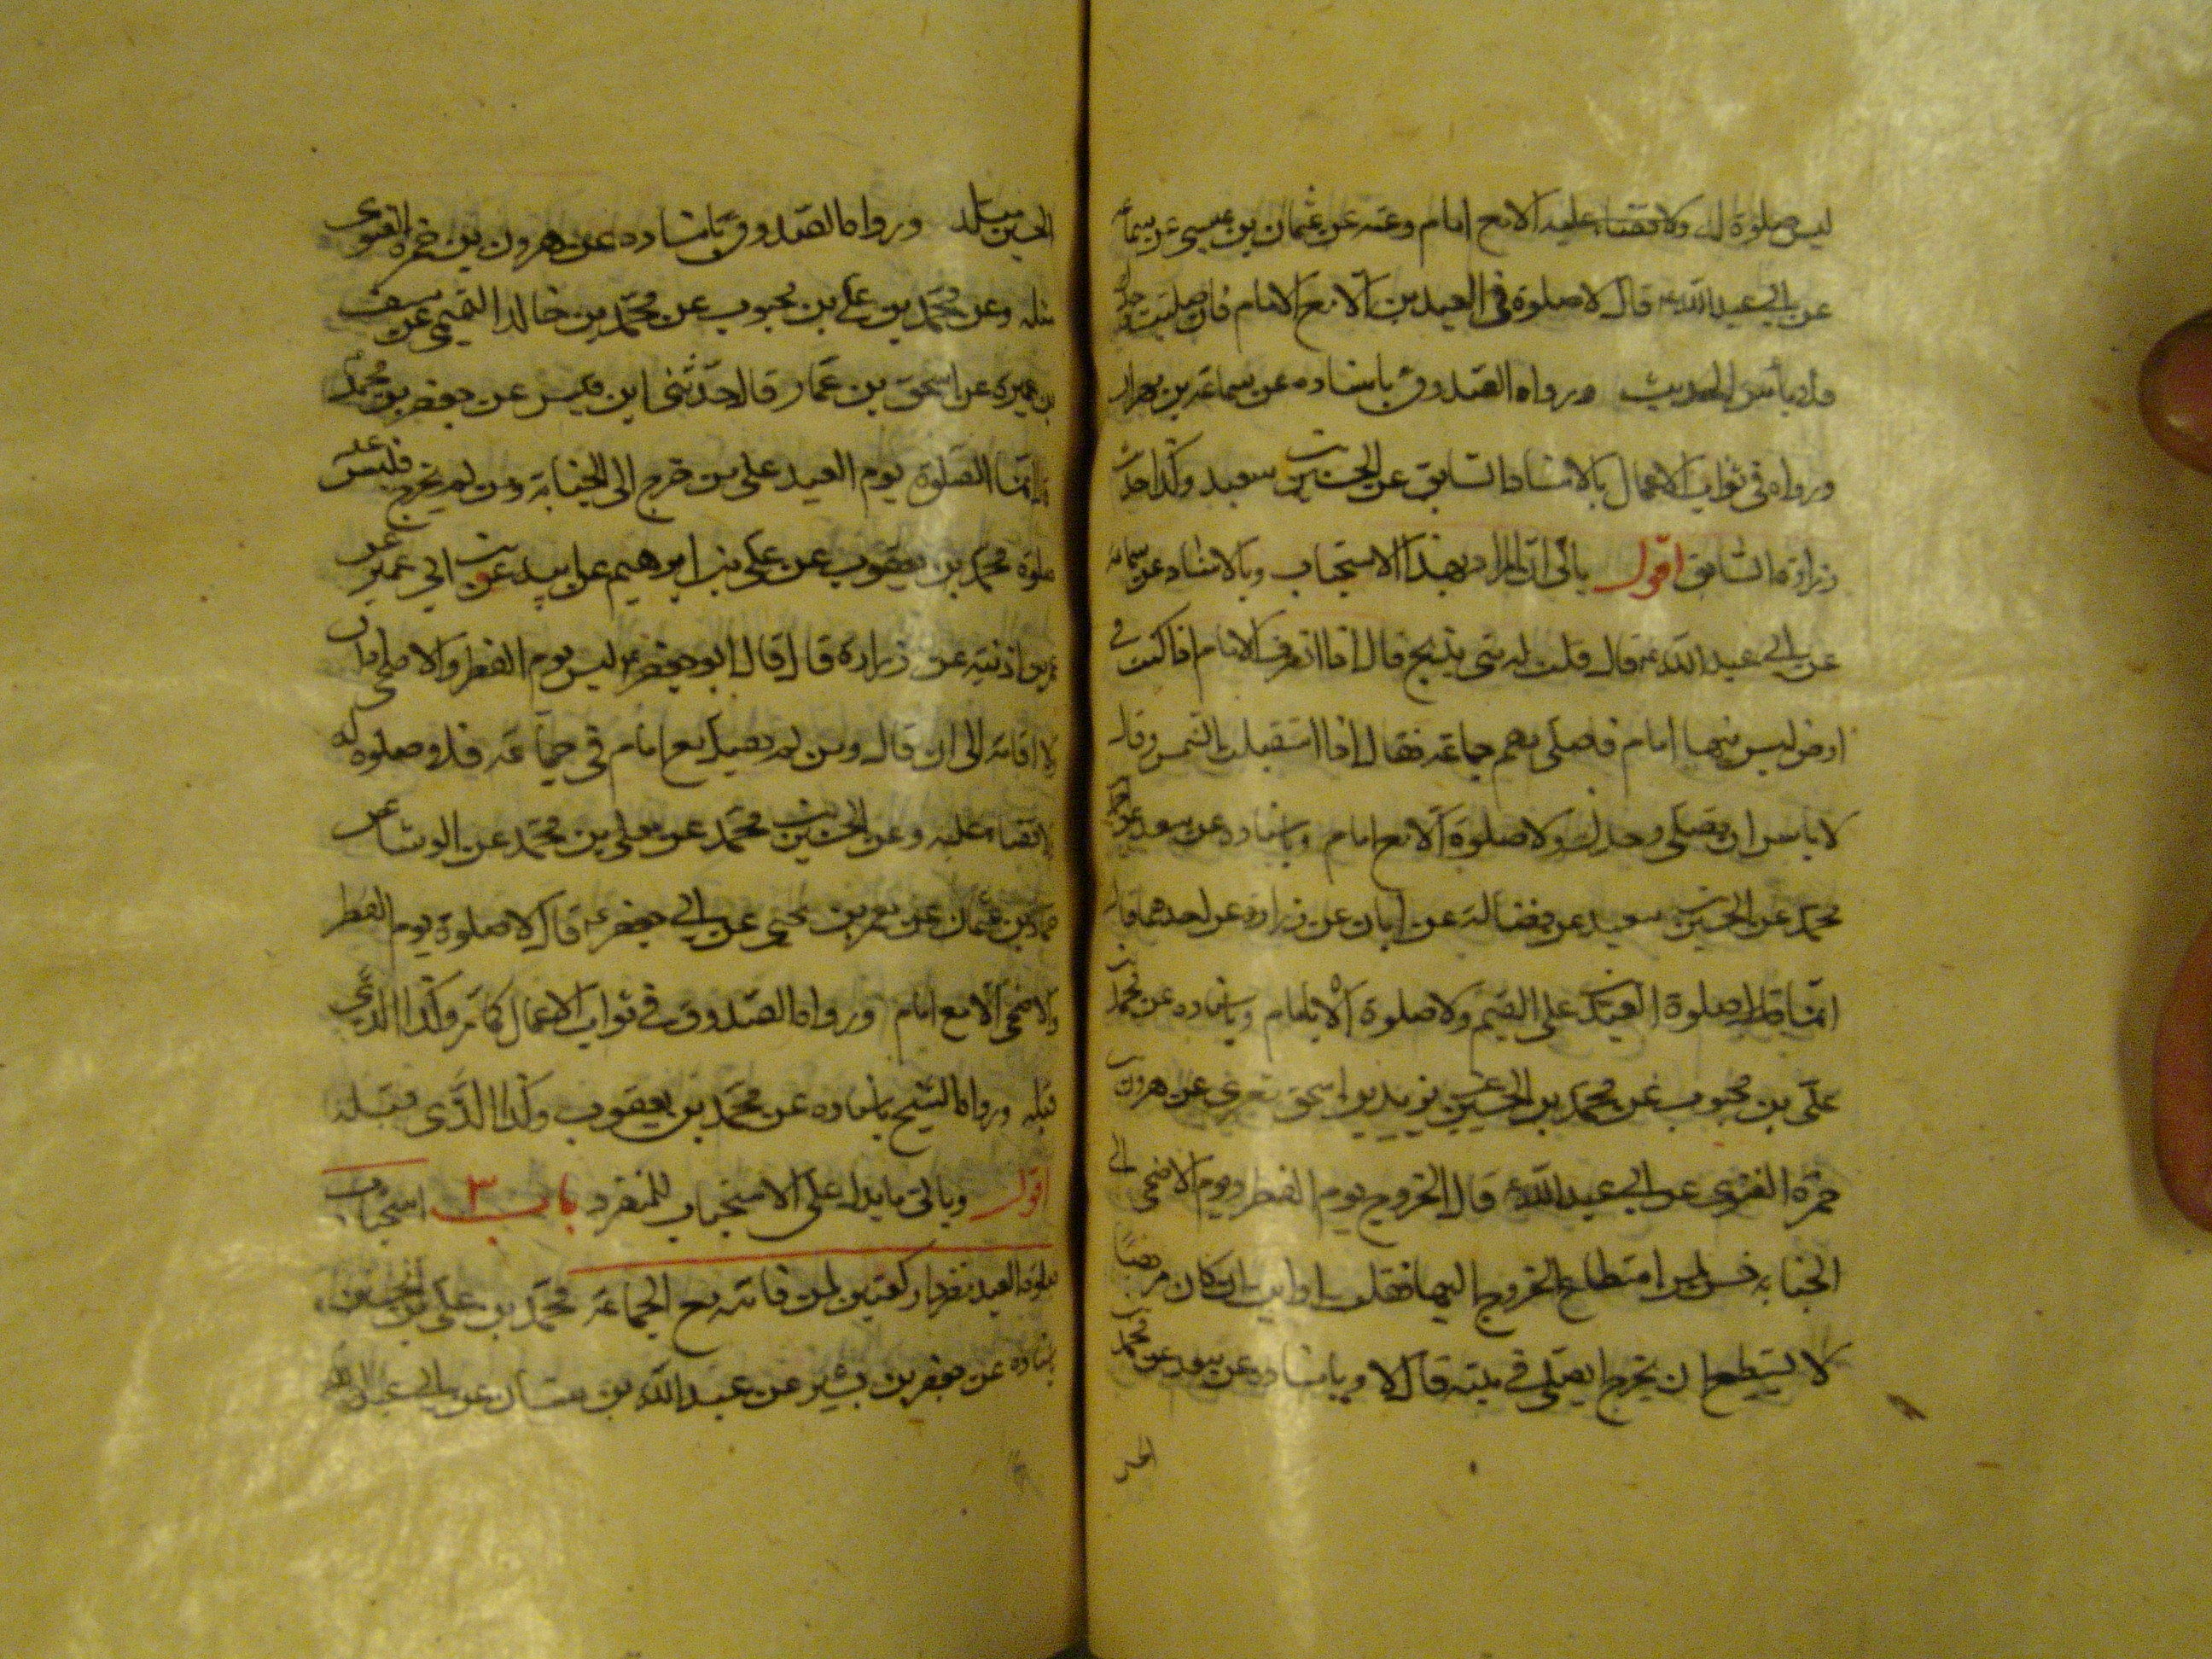 ليس صلوة له ولا قضاء عليه الا مع امام وعنه عن عثمان بن عيسى عن سماعة
عن ابي عبد الله ع قال لا صلوة في العيدين الا مع الامام فان صليت وحدك
فلا بأس الحديث ورواه الصدوق باسناده عن سماعة بن مهران
ورواه في ثواب الاعمال بالاسناد السابق عن الحسين بن سعيد وكذا حديث
زرارة السابق اقول ياتى ان المراد بهذا الاستحباب وبالاسناد عن سماعة
عن ابي عبد الله ع قال قلت له متى يذبح قال اذا انصرف الامام اذا كنت في
ارض ليس فيها امام فاصلى بهم جماعة فقال اذا استقبلت الشمس وقال
لا باس ان تصلى وحدك ولا صلوة الا مع امام وباسناده عن سعد عن
محمد عن الحسين بن سعيد عن فضالة عن ابان عن زرارة عن احدهما قال
انما صلوة العيدين على المقيم ولا صلوة الا بامام وباسناده عن محمد بن
على بن محبوب عن محمد بن الحسين عن يزيد بن اسحق شعر عن هرون بن
حمزة الغنوى عن ابي عبد الله ع قال الخروج يوم الفطر ويوم الاضحى الى
الجبانة حسن لمن استطاع الخروج اليها فقلت ارايت ان كان مريضا
لا يستطيع ان يخرج ايصلى في بيته قال لا وباسناده عن سعد عن محمد بن
الحسين مثله ورواه الصدوق باسناده عن هرون بن حمزة الغنوى
مثله وعن محمد بن على بن محبوب عن محمد بن خالد التميمى عن سيف
بن عميرة عن اسحق بن عمار قال حدثنى ابن قيس عن جعفر بن محمد
قال انما الصلوة يوم العيد على من خرج الى الجبانة ومن لم يخرج فليس عليه
صلوة محمد بن يعقوب عن على بن ابرهيم عن ابيه عن ابن ابي عمير عن
عمر بن اذينة عن زرارة قال قال ابو جعفر ع ليس يوم الفطر والاضحى اذان
ولا اقامة الى ان قال ومن لم يصل مع امام في جماعة فلا صلوة له
ولا قضاء عليه وعن الحسين بن محمد عن معلى بن محمد عن الوشا عن
حماد بن عثمان عن معمر بن يحيى عن ابي جعفر ع قال لا صلوة يوم الفطر
والاضحى الا مع امام ورواه الصدوق في ثواب الاعمال كما مر وكذا الذى
قبله ورواه الشيخ باسناده عن محمد بن يعقوب وكذا الذى قبله
اقول وياتى ما يدل على الاستحباب للمنفرد باب ٣ استحباب
صلوة العيد منفردا ركعتين لمن فاتته مع الجماعة محمد بن على بن الحسين
باسناده عن جعفر بن بشير عن عبد الله بن سنان عن ابي عبد الله